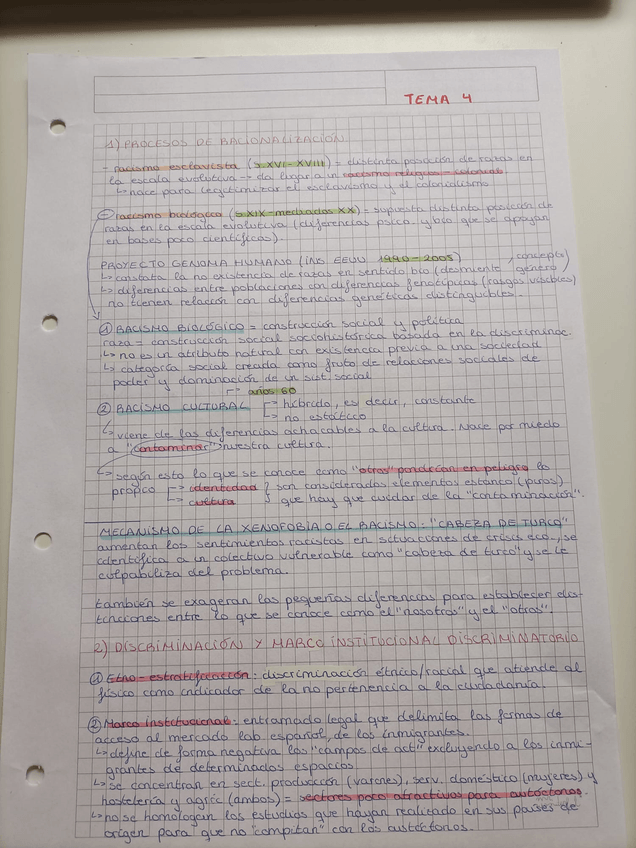 TEMA 4
1) PROCESOS DE RACIONALIZACIÓN
- racismo esclavista (s XVI-XVIII) = distinta posición de razas en
la escala evolutiva → da lugar a un racismo religioso-colonial
↳ nace para legitimizar el esclavismo y el colonialismo
- racismo biológico (s XIX-mediados XX) = supuesta distinta posición de
razas en la escala evolutiva (diferencias psico. y bio que se apoyan
en bases poco científicas).
PROYECTO GENOMA HUMANO (INS EEUU 1990-2005)
↳ constata la no existencia de razas en sentido bio (desmiente, concepto género)
↳ diferencias entre poblaciones con diferencias fenotípicas (rasgos visibles)
no tienen relación con diferencias genéticas distinguibles.
① RACISMO BIOLÓGICO = construcción social y política
raza = construcción social sociohistórica basada en la discriminac.
↳ no es un atributo natural con existencia previa a una sociedad
↳ categoría social creada como fruto de relaciones sociales de
poder y dominación de un sist. social
años 60
② RACISMO CULTURAL → híbrido, es decir, constante
→ no estático
↳ viene de las diferencias achacables a la cultura. Nace por miedo
a "contaminar" nuestra cultura.
↳ según esto lo que se conoce como "otros" pondrían en peligro lo
propio → identidad } son considerados elementos estanco (puros)
↳ cultura } que hay que cuidar de la "contaminación".
MECANISMO DE LA XENOFOBIA O EL RACISMO: "CABEZA DE TURCO"
aumentan los sentimientos racistas en situaciones de crisis eco., se
identifica a un colectivo vulnerable como "cabeza de turco" y se le
culpabiliza del problema.
también se exageran las pequeñas diferencias para establecer dis-
tinciones entre lo que se conoce como el "nosotros" y el "otros".
2) DISCRIMINACIÓN Y MARCO INSTITUCIONAL DISCRIMINATORIO
① Etno-estratificación: discriminación étnico/racial que atiende al
físico como indicador de la no pertenencia a la ciudadanía.
② Marco institucional: entramado legal que delimita las formas de
acceso al mercado lab. español, de los inmigrantes.
↳ define de forma negativa los "campos de act" excluyendo a los inmi-
grantes de determinados espacios
↳ se concentran en sect. producción (varones), serv. doméstico (mujeres) y
hostelería y agric (ambos) = sectores poco atractivos para autóctonos.
↳ no se homologan los estudios que hayan realizado en sus países de
origen para que no "compitan" con los autóctonos.